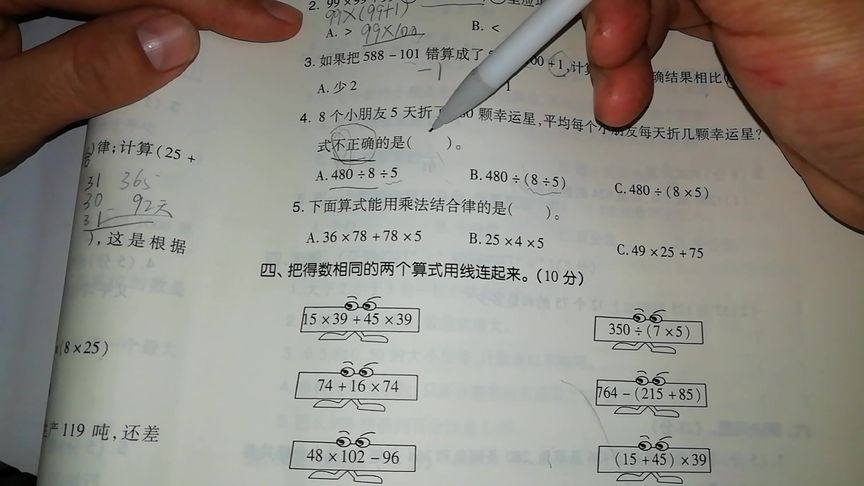 2. 99×99
99×(99+1)
A. > 99×100 B. <
3. 如果把 588-101 错算成了 5 00+1,计 确结果相比(
-1
A. 少 2 1
4. 8 个小朋友 5 天折 80 颗幸运星,平均每个小朋友每天折几颗幸运星?
式不正确的是( )。
A. 480÷8÷5 B. 480÷(8÷5) C. 480÷(8×5)
5. 下面算式能用乘法结合律的是( )。
A. 36×78+78×5 B. 25×4×5 C. 49×25+75
四、把得数相同的两个算式用线连起来。(10 分)
15×39+45×39 350÷(7×5)
74+16×74 764-(215+85)
48×102-96 (15+45)×39
律;计算(25+
31 365
30 - 92天
31
),这是根据
(8×25)
产119 吨,还差